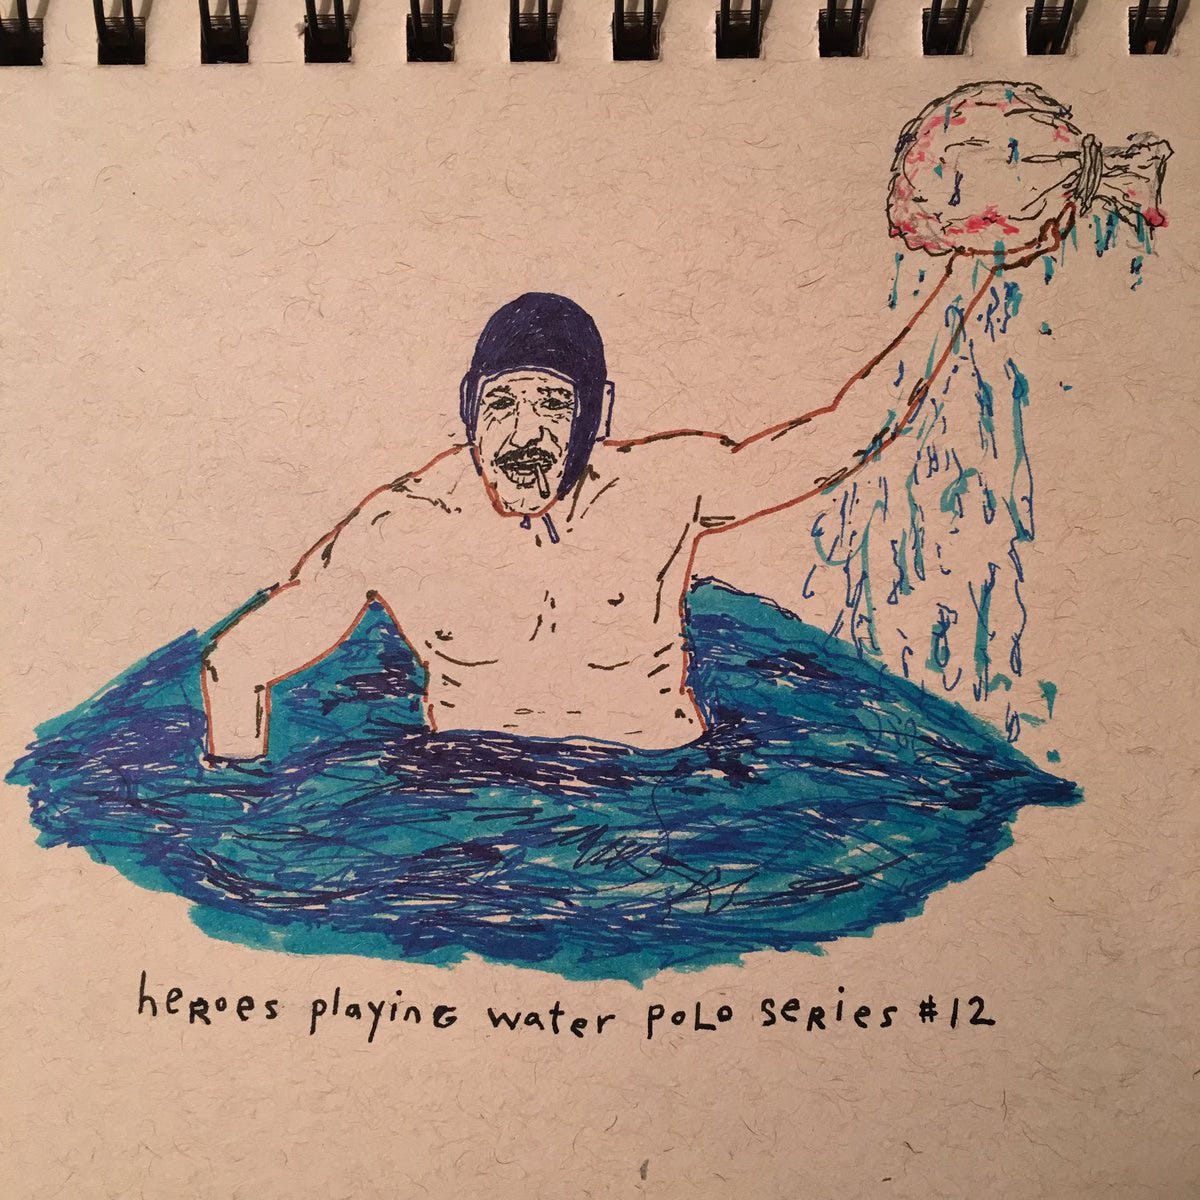 heRoes playinG water poLo seRies #12